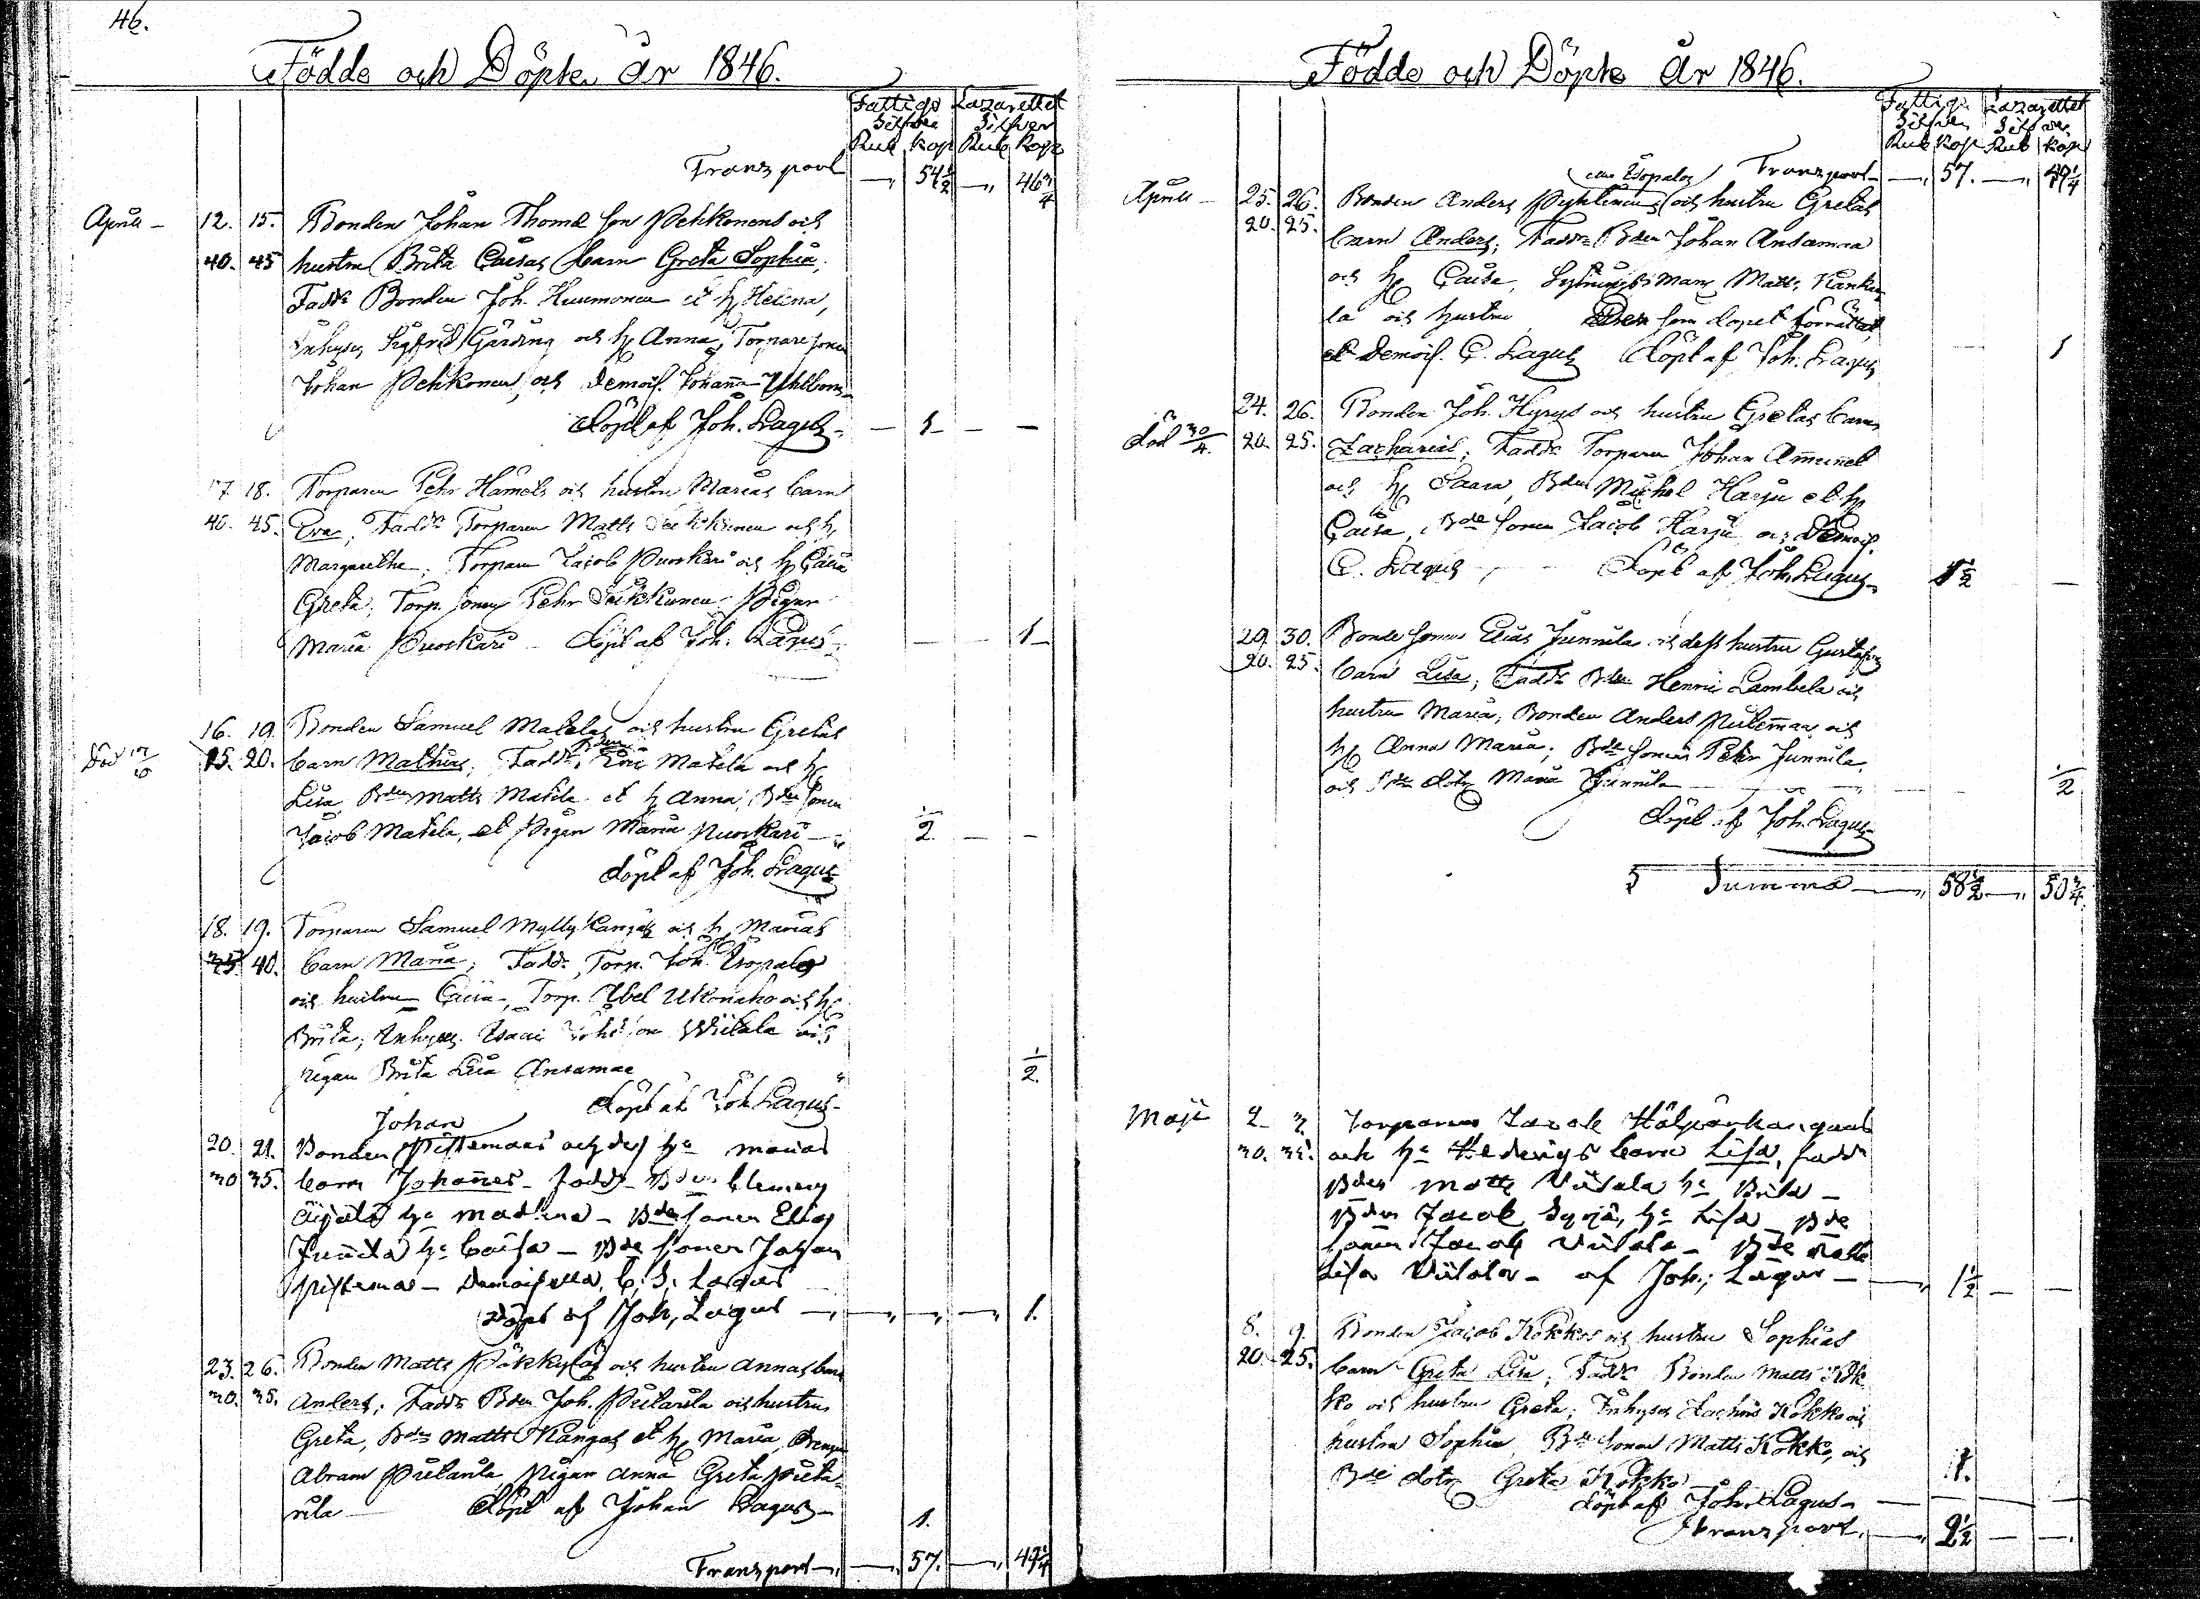 46.
Födde och Döpte År 1846.
Fattigs Lazarettet
Silfver Silfver
Rub kop Rub kop
Transport — 54 1/2 — 46 3/4
April 12. 15. Bonden Johan Thomæ son Pekkonens och
40. 45 hustru Brita Caisas barn Greta Sophia;
Fadd. Bonden Joh. Huumonen et h. Helena,
Inhyses Sigfred Gärding och h. Anna, Torpare sonen
Johan Pekkonen, och Demois. Johanna Uhlbom
döpt af Joh. Lagus — 1 — —
17 18. Torparen Pehr Hamols och hustru Marias barn
40. 45. Eva; Fadd. Torparen Matts och h.
Margaretha, Torparen Jacob Puoskari och h. Caisa
Greta, Torp. sonen Pehr Pigan
Maria Puoskari döpt af Joh. Lagus — — 1
16. 19. Bonden Samuel Matelas och hustru Gretas
Död 15. 20. barn Mathias; Fadd. Bden Eric Matela och h.
Lisa, Bden Matts Matela et h. Anna, Bde sonen
Jacob Matela, et Pigan Maria Puoskari — 1/2 — —
döpt af Joh. Lagus
18. 19. Torparen Samuel Myllykangas och h. Marias
35. 40. barn Maria; Fadd. Torp. Joh. Isopalo
och hustru Caisa, Torp. Abel Ukonaho och h.
Brita; Inhyses Isaac Wiitala och
Pigan Brita Lisa Ansamaa 1/2
döpt af Joh. Lagus
Johan
20. 21. Bonden Pistemaas och des h. Marias
30 35. barn Johannes Fadd. Bden Clemens
Äijälä h. Madlena — Bde sonen Elias
Junnila h. Caisa — Bde sonen Johan
Pistemaa — Demoisella C. S. Lagus
Döpt af Joh, Lagus — — — 1.
23. 26. Bonden Matts Päkkylas och hustru Annas barn
30. 35. Anders; Fadd. Bden Joh. Pietarila och hustru
Greta, Bden Matts Kangas et h. Maria, Drengen
Abram Pietarila, Pigan Anna Greta Pieta
rila döpt af Johan Lagus — 1.
Transport — 57. — 49 1/4
Födde och Döpte År 1846.
Fattigs Lazarettet
Silfver Silfver
Rub kop Rub kop
Isopalos Transport — 57. — 49 1/4
April — 25. 26. Bonden Anders och hustru Gretas
20. 25. barn Anders; Fadd. Bden Johan Ansamaa
och h. Caisa, Sytningsman Matts Kanka
la och hustru som dopet förrättat
et Demois. C. Lagus döpt af Joh. Lagus 1
24. 26. Bonden Joh. Hyrys och hustru Gretas barn
död 30/4. 20. 25. Zacharias; Fadd. Torparen Johan Ammunet
och h. Saara, Bden Michel Harju et h.
Caisa, Bde sonen Jacob Harju och Demois.
C. Lagus — döpt af Joh. Lagus 1 1/2 —
29. 30. Bonde sonen Elias Junnila och dess hustru Gustafvas
20. 25. barn Lisa; Fadd. Bden Henric Lambela och
hustru Maria, Bonden Anders och
h. Anna Maria; Bde sonen Pehr Junnila,
och Bde dotr Maria Junnila 1/2
döpt af Joh. Lagus
Summa — 58 1/2 — 50 3/4
Maji 2 3 Torparen Jacob Hälpärkangaas
30. 35. och h. Hedvigs barn Lisa, Fadd.
Bden Matts Viitala h. Brita —
Bden Jacob Syrjä, h. Lisa — Bde
sonen Jacob Viitala — Bde dottr
Lisa Viitala — af Joh; Lagus — 1 1/2 — —
8. 9. Bonden Jacob Kokkos och hustru Sophias
20. 25. barn Greta Lisa; Fadd. Bonden Matts Kok
ko och hustru Greta; Inhyses Zachris Kokko och
hustru Sophia, Bde sonen Matts Kokko, och
Bde dotr Greta Kokko 1.
döpt af Joh. Lagus —
Transport. — 2 1/2 — —